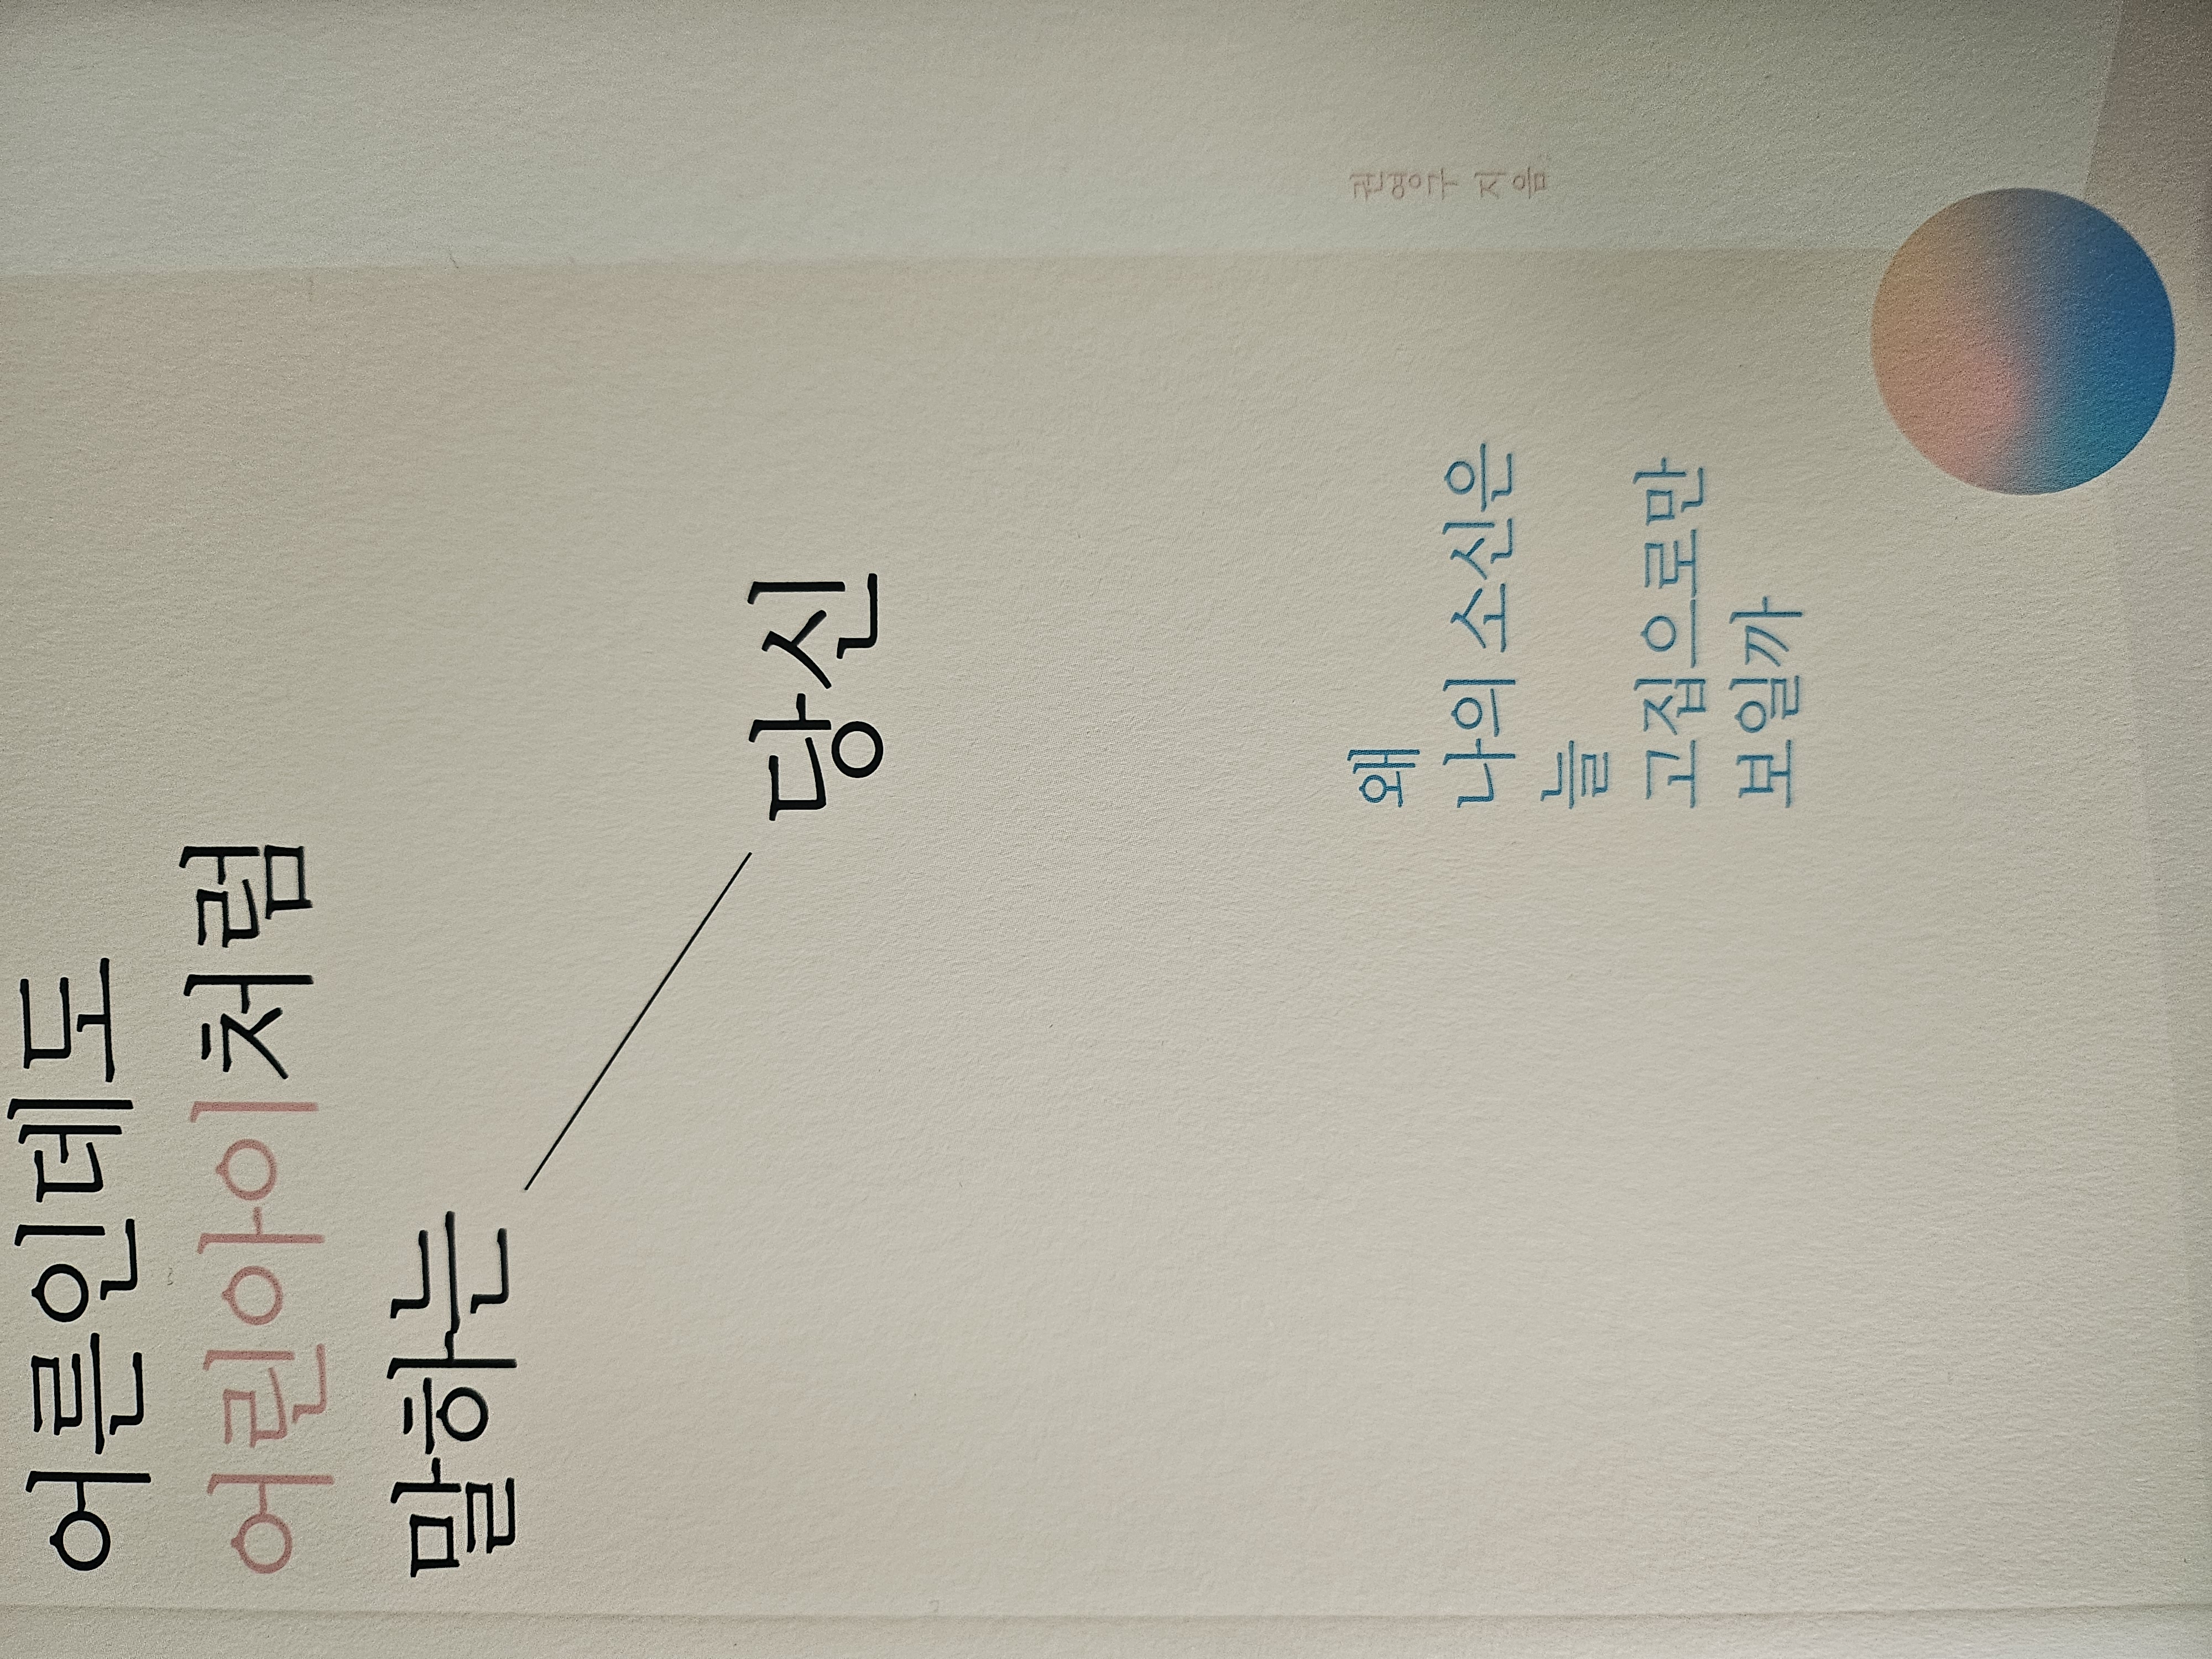 어른인데도
어린아이처럼
말하는
당신
왜
나의 소신은
늘
고집으로만
보일까
권영구 지음